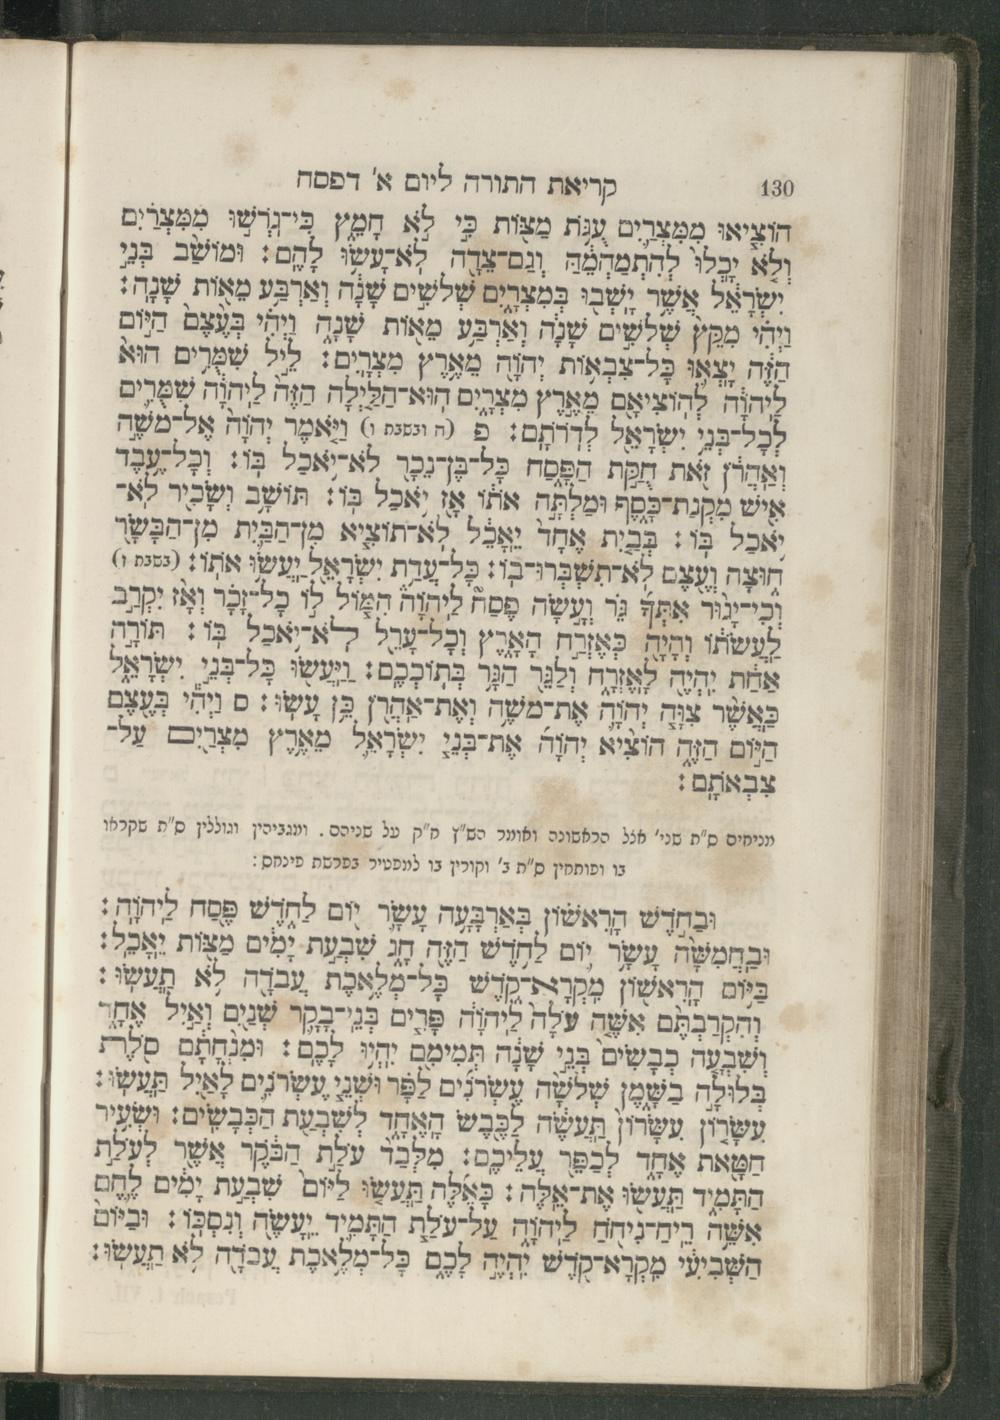 130 קריאת התורה ליום א' דפסח
הוֹצִ֨יאוּ מִמִּצְרַ֜יִם עֻגֹ֥ת מַצּ֖וֹת כִּ֣י לֹ֣א חָמֵ֑ץ כִּי־גֹרְשׁ֣וּ מִמִּצְרַ֗יִם
וְלֹ֤א יָֽכְלוּ֙ לְהִתְמַהְמֵ֔הַּ וְגַם־צֵדָ֖ה לֹֽא־עָשׂ֥וּ לָהֶֽם׃ וּמוֹשַׁב֙ בְּנֵ֣י
יִשְׂרָאֵ֔ל אֲשֶׁ֥ר יָשְׁב֖וּ בְּמִצְרָ֑יִם שְׁלֹשִׁ֣ים שָׁנָ֔ה וְאַרְבַּ֥ע מֵא֖וֹת שָׁנָֽה׃
וַיְהִ֗י מִקֵּץ֙ שְׁלֹשִׁ֣ים שָׁנָ֔ה וְאַרְבַּ֥ע מֵא֖וֹת שָׁנָ֑ה וַיְהִ֗י בְּעֶ֨צֶם֙ הַיּ֣וֹם
הַזֶּ֔ה יָֽצְא֛וּ כָּל־צִבְא֥וֹת יְהֹוָ֖ה מֵאֶ֥רֶץ מִצְרָֽיִם׃ לֵ֣יל שִׁמֻּרִ֥ים הוּא֙
לַֽיהֹוָ֔ה לְהוֹצִיאָ֖ם מֵאֶ֣רֶץ מִצְרָ֑יִם הֽוּא־הַלַּ֤יְלָה הַזֶּה֙ לַֽיהֹוָ֔ה שִׁמֻּרִ֛ים
לְכָל־בְּנֵ֥י יִשְׂרָאֵ֖ל לְדֹרֹתָֽם׃ פ (ה ובשבת ו) וַיֹּ֤אמֶר יְהֹוָה֙ אֶל־משֶׁ֣ה
וְאַֽהֲרֹ֔ן זֹ֖את חֻקַּ֣ת הַפָּ֑סַח כָּל־בֶּן־נֵכָ֖ר לֹא־יֹ֥אכַל בּֽוֹ׃ וְכָל־עֶ֥בֶד
אִ֖ישׁ מִקְנַת־כָּ֑סֶף וּמַלְתָּ֣ה אֹת֔וֹ אָ֖ז יֹ֥אכַל בּֽוֹ׃ תּוֹשָׁ֥ב וְשָׂכִ֖יר לֹֽא־
יֹ֥אכַל בּֽוֹ׃ בְּבַ֤יִת אֶחָד֙ יֵֽאָכֵ֔ל לֹֽא־תוֹצִ֧יא מִן־הַבַּ֛יִת מִן־הַבָּשָׂ֖ר
ח֑וּצָה וְעֶ֖צֶם לֹ֥א־תִשְׁבְּרוּ־בֽוֹ׃ כָּל־עֲדַ֥ת יִשְׂרָאֵ֖ל יַֽעֲשׂ֥וּ אֹתֽוֹ׃ (בשבת ז)
וְכִֽי־יָג֨וּר אִתְּךָ֜ גֵּ֗ר וְעָ֣שָׂה פֶסַח֮ לַֽיהֹוָה֒ הִמּ֧וֹל ל֣וֹ כָל־זָכָ֗ר וְאָ֛ז יִקְרַ֥ב
לַֽעֲשֹׂת֔וֹ וְהָיָ֖ה כְּאֶזְרַ֣ח הָאָ֑רֶץ וְכָל־עָרֵ֖ל לֹא־יֹ֥אכַל בּֽוֹ׃ תּוֹרָ֣ה
אַחַ֔ת יִֽהְיֶ֖ה לָֽאֶזְרָ֑ח וְלַגֵּ֖ר הַגָּ֥ר בְּתֽוֹכְכֶֽם׃ וַיַּֽעֲשׂ֖וּ כָּל־בְּנֵ֣י יִשְׂרָאֵ֑ל
כַּֽאֲשֶׁ֨ר צִוָּ֧ה יְהֹוָ֛ה אֶת־משֶׁ֥ה וְאֶת־אַֽהֲרֹ֖ן כֵּ֥ן עָשֽׂוּ׃ ס וַיְהִ֕י בְּעֶ֖צֶם
הַיּ֣וֹם הַזֶּ֑ה הוֹצִ֨יא יְהֹוָ֜ה אֶת־בְּנֵ֧י יִשְׂרָאֵ֛ל מֵאֶ֥רֶץ מִצְרַ֖יִם עַל־
צִבְאֹתָֽם׃
מניחים ס"ת שני' אצל הראשונה ואומר הש"ץ ח"ק על שניהם. ומגביהין וגוללין ס"ת שקראו
בו ופותחין ס"ת ב' וקורין בו למפטיר בפרשת פינחס׃
וּבַחֹ֣דֶשׁ הָֽרִאשׁ֗וֹן בְּאַרְבָּעָ֥ה עָשָׂ֛ר י֖וֹם לַחֹ֑דֶשׁ פֶּ֖סַח לַֽיהֹוָֽה׃
וּבַֽחֲמִשָּׁ֨ה עָשָׂ֥ר י֛וֹם לַחֹ֥דֶשׁ הַזֶּ֖ה חָ֑ג שִׁבְעַ֣ת יָמִ֔ים מַצּ֖וֹת יֵֽאָכֵֽל׃
בַּיּ֥וֹם הָֽרִאשׁ֖וֹן מִקְרָא־קֹ֑דֶשׁ כָּל־מְלֶ֥אכֶת עֲבֹדָ֖ה לֹ֥א תַֽעֲשֽׂוּ׃
וְהִקְרַבְתֶּ֨ם אִשֶּׁ֤ה עֹלָה֙ לַֽיהֹוָ֔ה פָּרִ֧ים בְּנֵֽי־בָקָ֛ר שְׁנַ֖יִם וְאַ֣יִל אֶחָ֑ד
וְשִׁבְעָ֤ה כְבָשִׂים֙ בְּנֵ֣י שָׁנָ֔ה תְּמִימִ֖ם יִהְי֥וּ לָכֶֽם׃ וּמִ֨נְחָתָ֔ם סֹ֖לֶת
בְּלוּלָ֣ה בַשָּׁ֑מֶן שְׁלשָׁ֨ה עֶשְׂרֹנִ֜ים לַפָּ֗ר וּשְׁנֵ֧י עֶשְׂרֹנִ֛ים לָאַ֖יִל תַּֽעֲשֽׂוּ׃
עִשָּׂר֤וֹן עִשָּׂרוֹן֙ תַּֽעֲשֶׂ֔ה לַכֶּ֖בֶשׂ הָֽאֶחָ֑ד לְשִׁבְעַ֖ת הַכְּבָשִֽׂים׃ וּשְׂעִ֥יר
חַטָּ֖את אֶחָ֑ד לְכַפֵּ֖ר עֲלֵיכֶֽם׃ מִלְּבַד֙ עֹלַ֣ת הַבֹּ֔קֶר אֲשֶׁ֖ר לְעֹלַ֣ת
הַתָּמִ֑יד תַּֽעֲשׂ֖וּ אֶת־אֵֽלֶּה׃ כָּאֵ֜לֶּה תַּֽעֲשׂ֤וּ לַיּוֹם֙ שִׁבְעַ֣ת יָמִ֔ים לֶ֛חֶם
אִשֵּׁ֥ה רֵֽיחַ־נִיחֹ֖חַ לַֽיהֹוָ֑ה עַל־עוֹלַ֧ת הַתָּמִ֛יד יֵֽעָשֶׂ֖ה וְנִסְכּֽוֹ׃ וּבַיּוֹם֙
הַשְּׁבִיעִ֔י מִקְרָא־קֹ֖דֶשׁ יִֽהְיֶ֣ה לָכֶ֑ם כָּל־מְלֶ֥אכֶת עֲבֹדָ֖ה לֹ֥א תַֽעֲשֽׂוּ׃